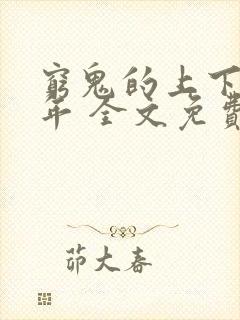 窮鬼的上下
年 全文免費
茆大春